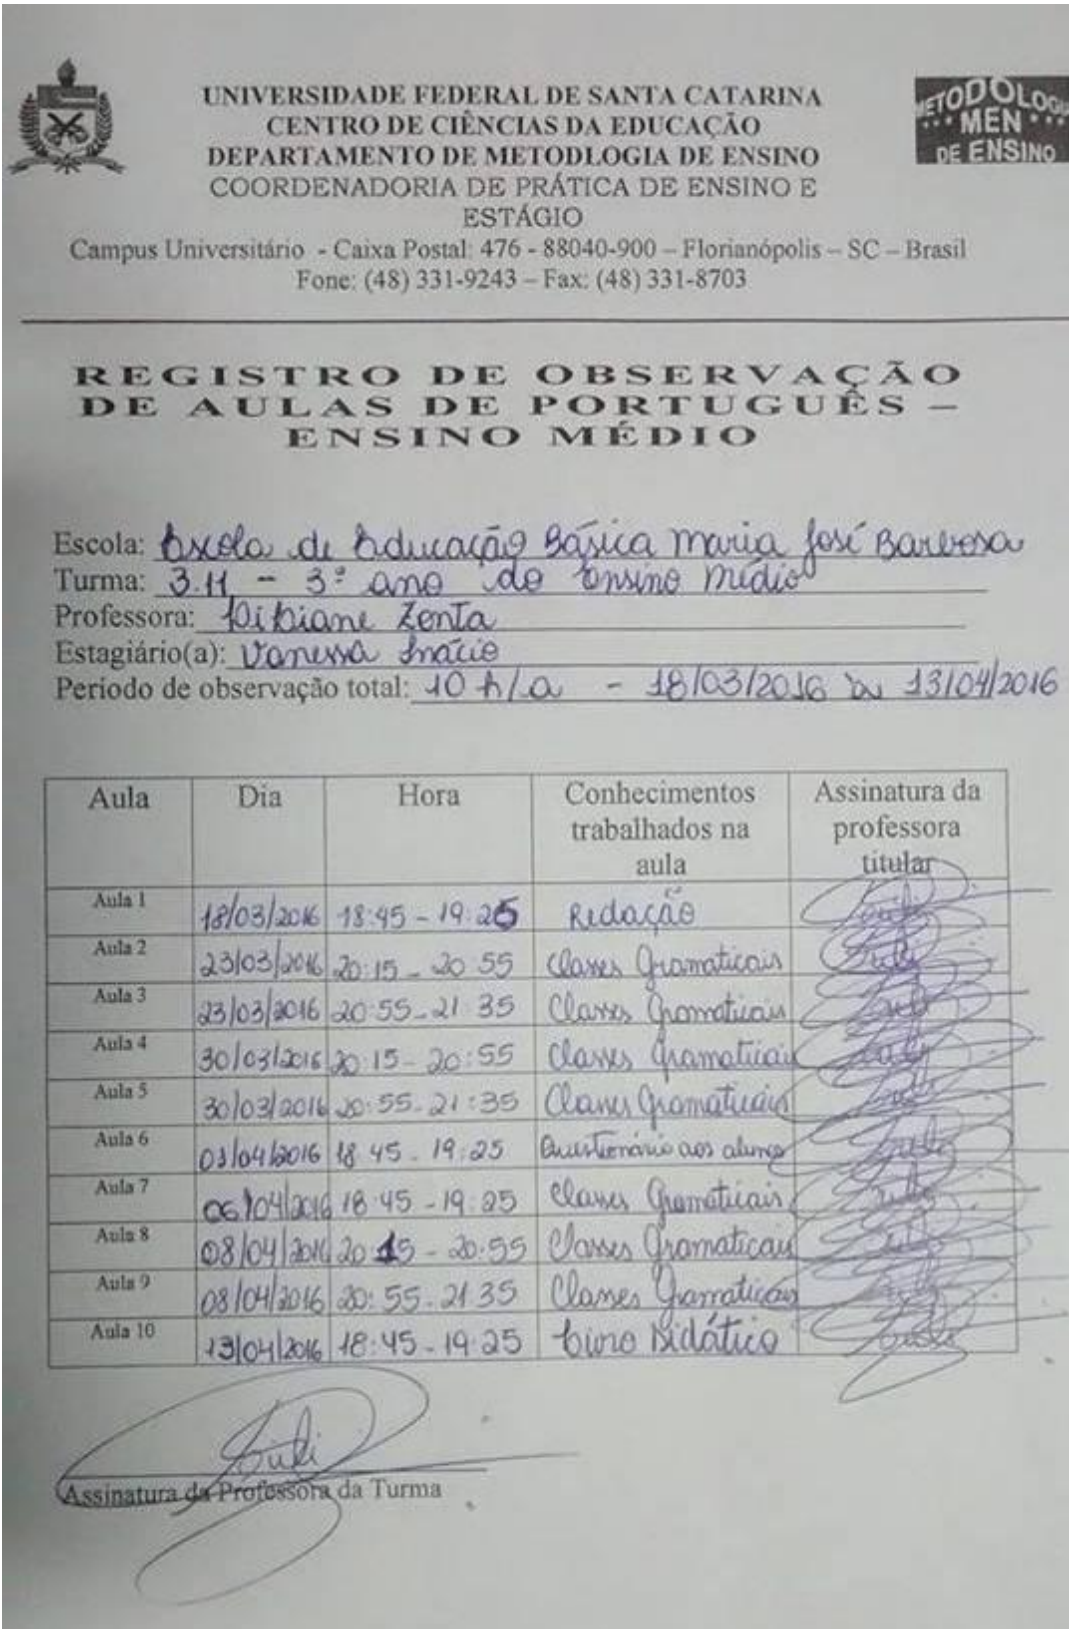 UNIVERSIDADE FEDERAL DE SANTA CATARINA
CENTRO DE CIÊNCIAS DA EDUCAÇÃO
DEPARTAMENTO DE METODLOGIA DE ENSINO
COORDENADORIA DE PRÁTICA DE ENSINO E
ESTÁGIO
Campus Universitário - Caixa Postal: 476 - 88040-900 – Florianópolis – SC – Brasil
Fone: (48) 331-9243 – Fax: (48) 331-8703
METODOLOGIA
MEN
DE ENSINO
REGISTRO DE OBSERVAÇÃO
DE AULAS DE PORTUGUÊS –
ENSINO MÉDIO
Escola: Escola de Educação Básica Maria José Barbosa
Turma: 3.11 - 3º ano do Ensino Médio
Professora: Zenta
Estagiário(a): Vanessa Inácio
Período de observação total: 10 h/a - 18/03/2016 à 13/04/2016
Aula Dia Hora Conhecimentos trabalhados na aula Assinatura da professora titular
Aula 1 18/03/2016 18:45 - 19:25 Redação
Aula 2 23/03/2016 20:15 - 20:55 Classes Gramaticais
Aula 3 23/03/2016 20:55 - 21:35 Classes Gramaticais
Aula 4 30/03/2016 20:15 - 20:55 Classes Gramaticais
Aula 5 30/03/2016 20:55 - 21:35 Classes Gramaticais
Aula 6 01/04/2016 18:45 - 19:25 Questionário aos alunos
Aula 7 06/04/2016 18:45 - 19:25 Classes Gramaticais
Aula 8 08/04/2016 20:15 - 20:55 Classes Gramaticais
Aula 9 08/04/2016 20:55 - 21:35 Classes Gramaticais
Aula 10 13/04/2016 18:45 - 19:25 Livro Didático
Assinatura da Professora da Turma